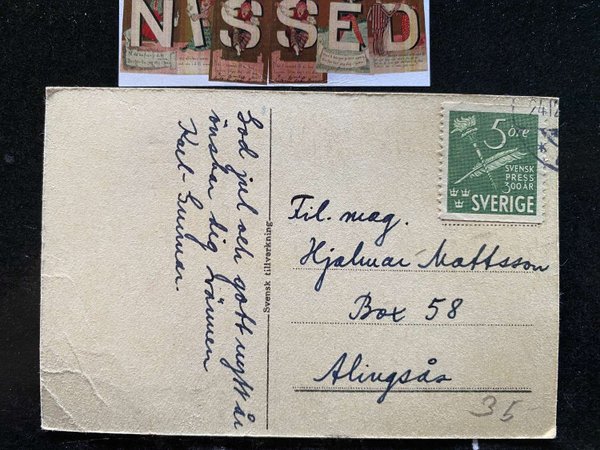 NISSED
God jul och gott nytt år
önskar dig vännen
Karl-Gunnar.
Svensk tillverkning
5 öre
SVENSK
PRESS
300 ÅR
SVERIGE
Fil. mag.
Hjalmar Mattsson
Box 58
Alingsås
35